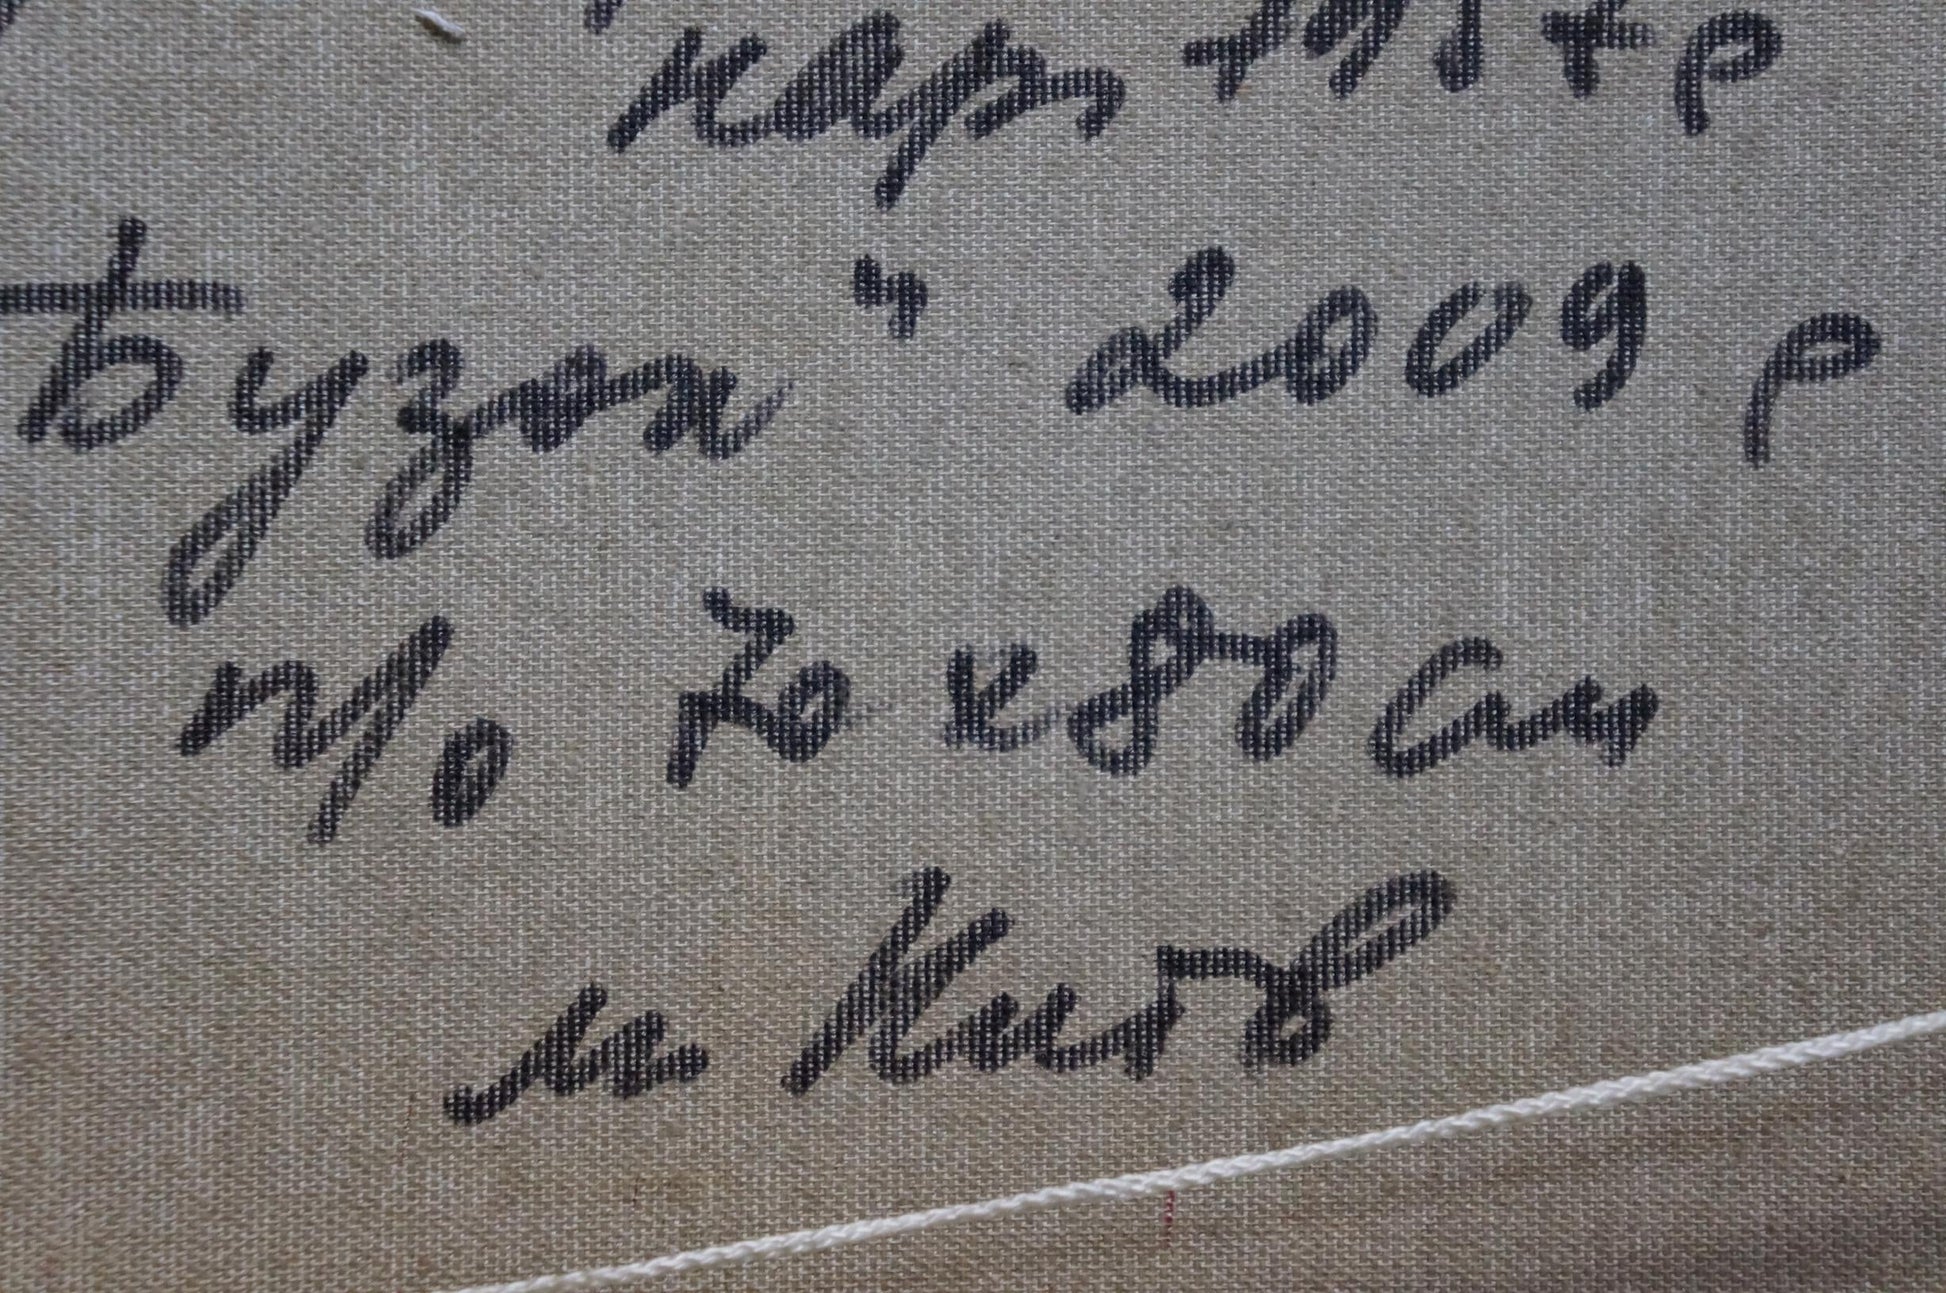 нар. 1937 р
Бузок" 2009 р
п/о 70 x 80 см
м Київ